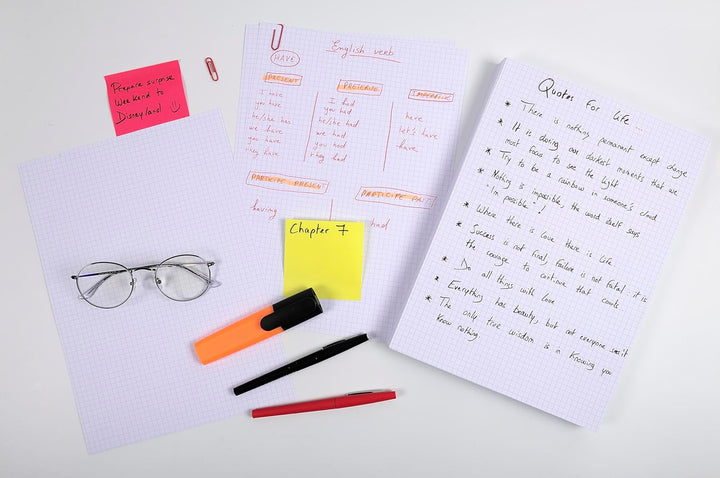 Prepare surprise
Weekend to
Disneyland
English verb
HAVE
PRESENT
I have
you have
he/she has
we have
you have
they have
PRETERITE
I had
you had
he/she had
we had
you had
they had
IMPERATIVE
have
let's have
have
PARTICIPE PRESENT
having
PARTICIPE PAST
had
Chapter 7
Quotes For Life ...
* There is nothing permanent except change
* It is during our darkest moments that we
most focus to see the light
* Try to be a rainbow in someone's cloud
* Nothing is impossible, the word itself says
"I'm possible"!
* Where there is love there is life
* Success is not final, failure is not fatal: it is
the courage to continue that counts
* Do all things with love
* Everything has beauty, but not everyone sees it
* The only true wisdom is in knowing you
know nothing